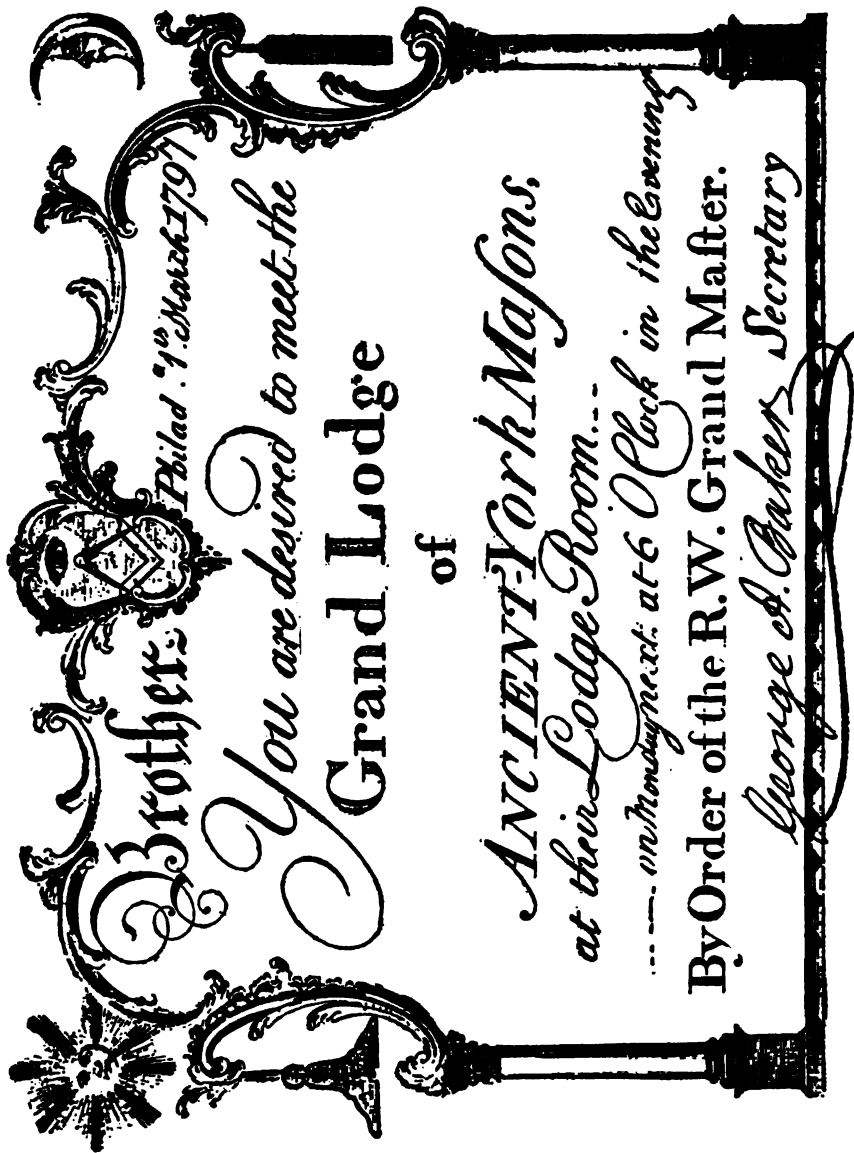 Brother:
Philad.ª 1ˢᵗ March 1797
You are desired to meet the
Grand Lodge
of
ANCIENT-York Maſons,
at their Lodge Room...
on Monday next: at 6 OClock in the Evening
By Order of the R.W. Grand Maſter.
George A. Baker Secretary